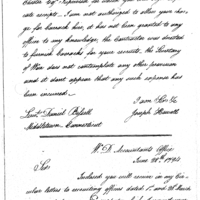 receipts. I am not authorized to allow your charge
for barracks hire, it has not been granted to any
officer to my knowledge, the Contractor was directed
to furnish Barracks for your recruits, the Secretary
of War does not contemplate any other provision
and it dont appear that any such expence has
been incurred.
I am Sir &c
Lieut. Daniel Bissell Joseph Howell
Middletown Connecticut
W. D. Accountants Office
June 20th 1794
Sir
Inclosed you will receive in my Circular
letters to recruiting officers dated 1st and